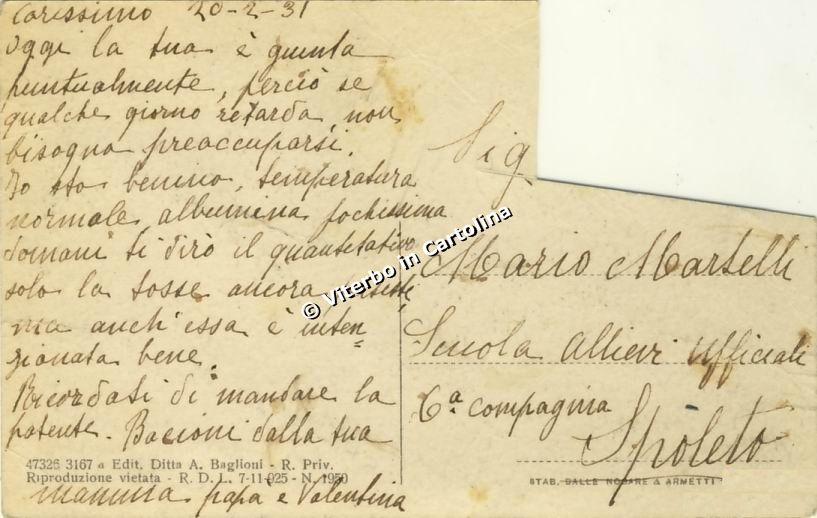 Carissimo 20-2-31
Oggi la tua è giunta
puntualmente, perciò se
qualche giorno retarda non
bisogna preaccuparsi.
Io sto benino, temperatura
normale albumina pochissima
domani ti dirò il quantetativo
solo la tosse ancora
ma anch'essa è inten=
zionata bene.
Ricordati di mandare la
patente. Bacioni dalla tua
mamma papa e Valentina
Sig
Mario Martelli
Scuola Allievi Ufficiali
6ª compagnia
Spoleto
47326 3167 a Edit. Ditta A. Baglioni - R. Priv.
Riproduzione vietata - R. D. L. 7-11-925 - N. 1950
STAB. DALLE NOGARE & ARMETTI
© Viterbo in Cartolina